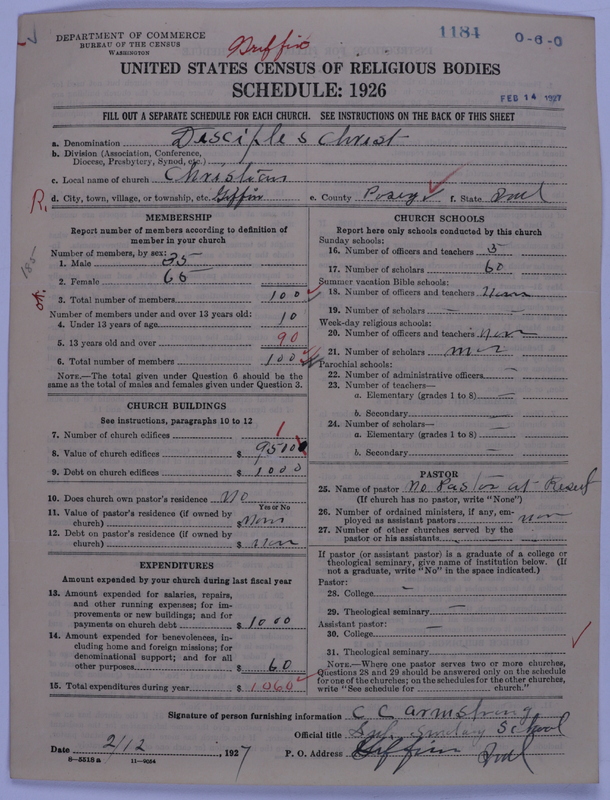 1184
0-6-0
DEPARTMENT OF COMMERCE
BUREAU OF THE CENSUS
WASHINGTON
Griffin
UNITED STATES CENSUS OF RELIGIOUS BODIES
SCHEDULE: 1926
FEB 14 1927
FILL OUT A SEPARATE SCHEDULE FOR EACH CHURCH. SEE INSTRUCTIONS ON THE BACK OF THIS SHEET
a. Denomination Disciples Christ
b. Division (Association, Conference,
Diocese, Presbytery, Synod, etc.)
c. Local name of church Christian
R. d. City, town, village, or township, etc. Giffin e. County Posey f. State Ind
MEMBERSHIP
Report number of members according to definition of
member in your church
Number of members, by sex:
1. Male 35
2. Female 65
3. Total number of members 100
Number of members under and over 13 years old:
4. Under 13 years of age 10
5. 13 years old and over 90
6. Total number of members 100
NOTE.—The total given under Question 6 should be
same as the total of males and females given under Question 3.
185
CHURCH BUILDINGS
See instructions, paragraphs 10 to 12
7. Number of church edifices 1
8. Value of church edifices $
9. Debt on church edifices $ 1000
10. Does church own pastor's residence No
Yes or No
11. Value of pastor's residence (if owned by
church) $ None
12. Debt on pastor's residence (if owned by
church) $ None
EXPENDITURES
Amount expended by your church during last fiscal year
13. Amount expended for salaries, repairs,
and other running expenses; for im-
provements or new buildings; and for
payments on church debt $ 1000
14. Amount expended for benevolences, in-
cluding home and foreign missions; for
denominational support; and for all
other purposes $ 60
15. Total expenditures during year $ 1060
CHURCH SCHOOLS
Report here only schools conducted by this church
Sunday schools:
16. Number of officers and teachers 5
17. Number of scholars 60
Summer vacation Bible schools:
18. Number of officers and teachers None
19. Number of scholars — —
Week-day religious schools:
20. Number of officers and teachers None
21. Number of scholars
Parochial schools:
22. Number of administrative officers —
23. Number of teachers—
a. Elementary (grades 1 to 8) —
b. Secondary —
24. Number of scholars—
a. Elementary (grades 1 to 8) —
b. Secondary —
PASTOR
25. Name of pastor No Pastor at Present
(If church has no pastor, write "None")
26. Number of ordained ministers, if any, em-
ployed as assistant pastors None
27. Number of other churches served by the
pastor or his assistants
If pastor (or assistant pastor) is a graduate of a college or
theological seminary, give name of institution below. (If
not a graduate, write "No" in the space indicated.)
Pastor:
28. College —
29. Theological seminary —
Assistant pastor:
30. College —
31. Theological seminary —
NOTE.—Where one pastor serves two or more churches,
Questions 28 and 29 should be answered only on the schedule
for one of the churches; on the schedules for the other churches,
write "See schedule for church."
Signature of person furnishing information C C Armstrong
Official title Supt. Sunday School
Date 2/12, 1927 P. O. Address Giffin Ind
8—5518 a 11—9054